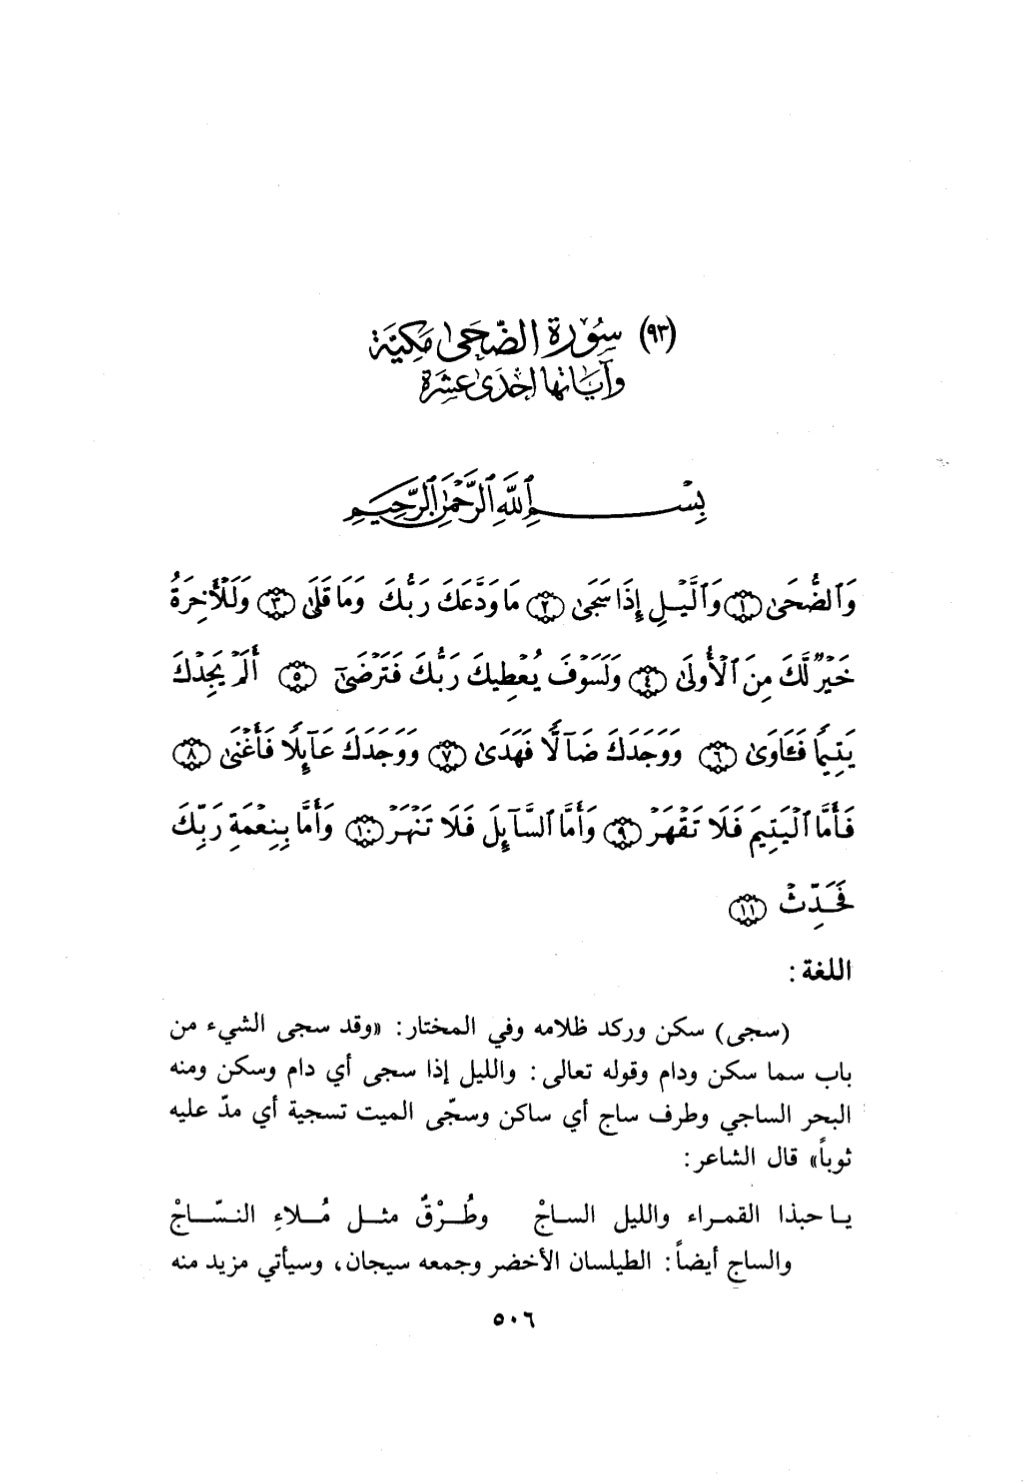 (٩٣) سُورة الضّحَىٰ مَكِيّة
وآيَاتها إحْدَىٰ عشرَة
بِسْمِ ٱللَّهِ ٱلرَّحْمَٰنِ ٱلرَّحِيمِ
وَٱلضُّحَىٰ ١ وَٱلَّيْلِ إِذَا سَجَىٰ ٢ مَا وَدَّعَكَ رَبُّكَ وَمَا قَلَىٰ ٣ وَلَلْأَخِرَةُ
خَيْرٌ لَّكَ مِنَ ٱلْأُولَىٰ ٤ وَلَسَوْفَ يُعْطِيكَ رَبُّكَ فَتَرْضَىٰٓ ٥ أَلَمْ يَجِدْكَ
يَتِيمًا فَـَٔاوَىٰ ٦ وَوَجَدَكَ ضَآلًّا فَهَدَىٰ ٧ وَوَجَدَكَ عَآئِلًا فَأَغْنَىٰ ٨
فَأَمَّا ٱلْيَتِيمَ فَلَا تَقْهَرْ ٩ وَأَمَّا ٱلسَّآئِلَ فَلَا تَنْهَرْ ١٠ وَأَمَّا بِنِعْمَةِ رَبِّكَ
فَحَدِّثْ ١١
اللغة:
(سجى) سكن وركد ظلامه وفي المختار: «وقد سجى الشيء من
باب سما سكن ودام وقوله تعالى: والليل إذا سجى أي دام وسكن ومنه
البحر الساجي وطرف ساج أي ساكن وسجّى الميت تسجية أي مدّ عليه
ثوباً» قال الشاعر:
يا حبذا القمراء والليل الساجْ وطُرْقٌ مثل مُلاءِ النسّاجْ
والساج أيضاً: الطيلسان الأخضر وجمعه سيجان، وسيأتي مزيد منه
٥٠٦